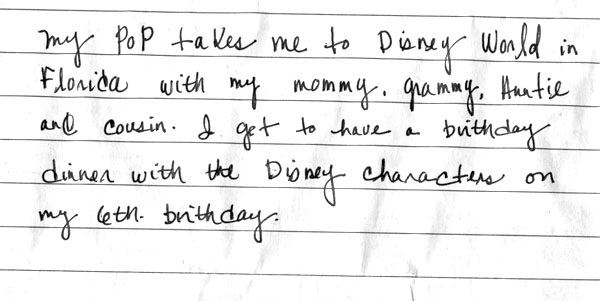 my POP takes me to Disney World in
Florida with my mommy, grammy, Auntie
and cousin. I get to have a birthday
dinner with the Disney characters on
my 6th. birthday.